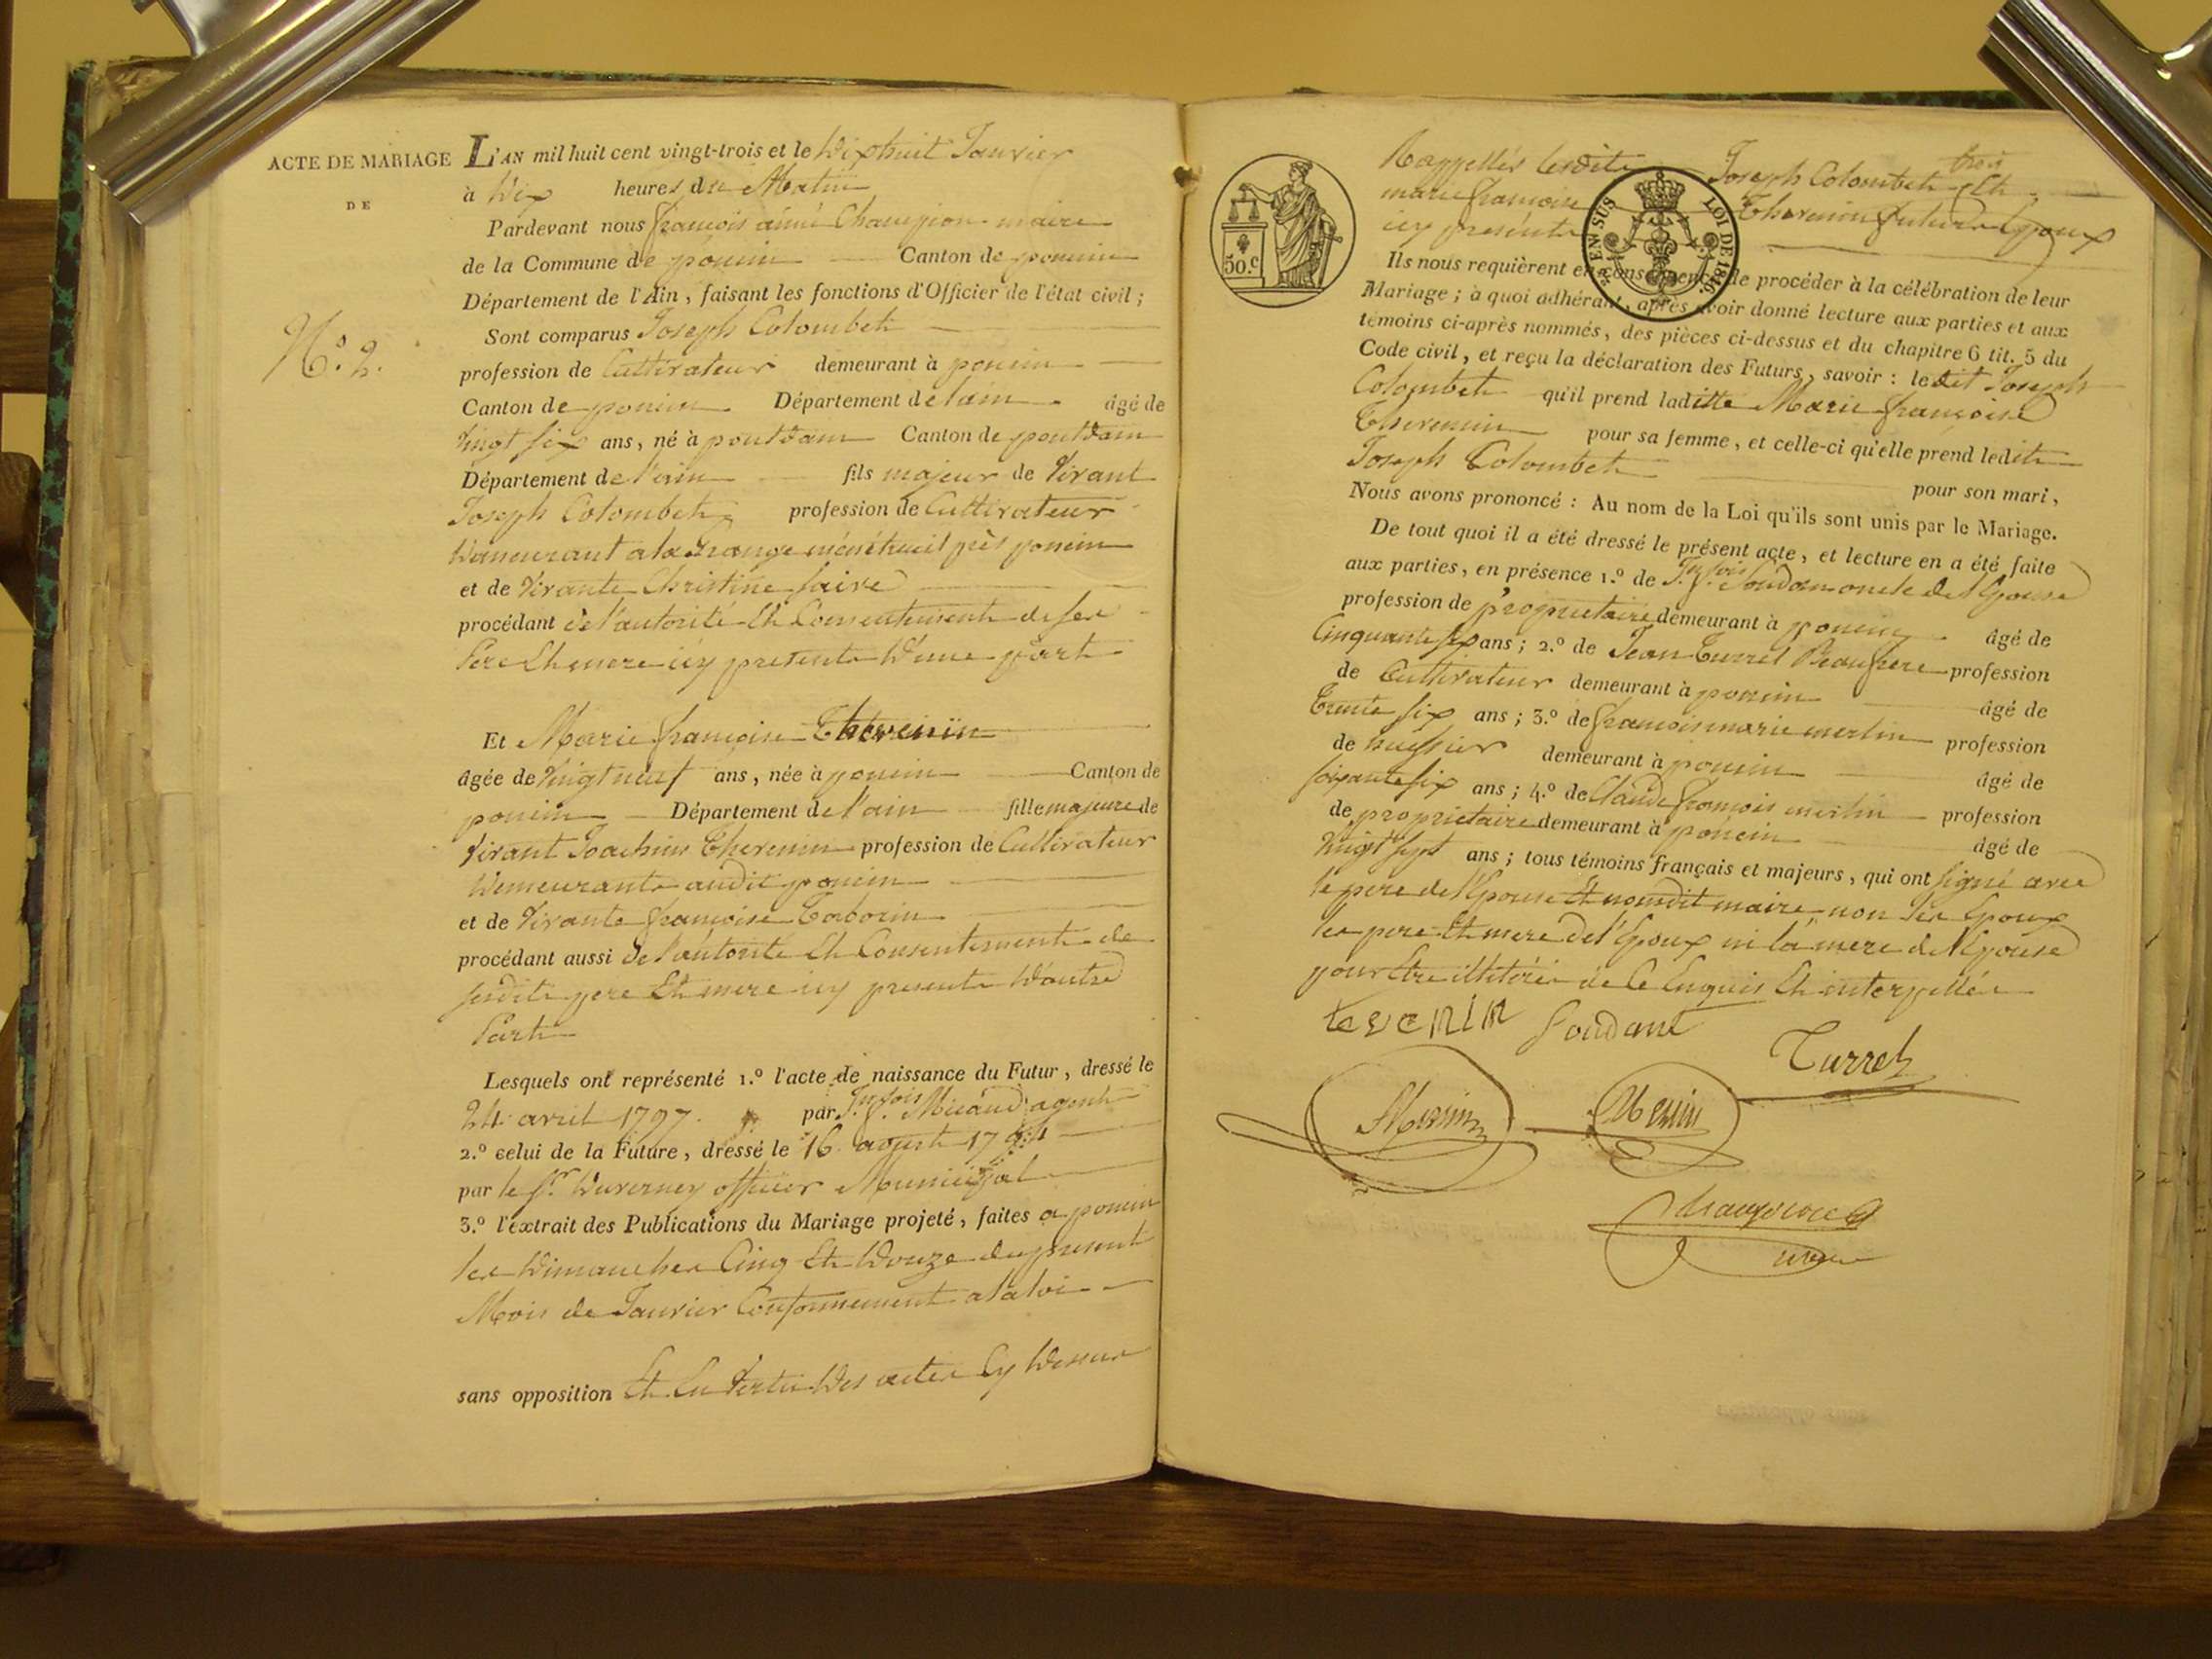 ACTE DE MARIAGE
DE
N.º 2.
L'AN mil huit cent vingt-trois et le dixhuit Janvier
à dix heures du Matin
Pardevant nous françois aimé Champion maire
de la Commune de poncin Canton de poncin
Département de l'Ain, faisant les fonctions d'Officier de l'état civil;
Sont comparus Joseph Colombet
profession de Cultivateur demeurant à poncin
Canton de poncin Département de l'ain âgé de
vingt six ans, né à pontdain Canton de pontdain
Département de l'ain fils majeur de vivant
Joseph Colombet profession de Cultivateur
demeurant a la grange près poncin
et de vivante Christine faivre
procédant de l'autorité Et Consentement de ses
Pere Et mere icy presents d'une part
Et Marie françoise Thevenin
âgée de vingt neuf ans, née à poncin Canton de
poncin Département de l'ain fille majeure de
vivant Joachim Thevenin profession de Cultivateur
demeurant audit poncin
et de vivante françoise
procédant aussi de l'autorité Et Consentement de
sesdits pere Et mere icy presents d'autre
Part
Lesquels ont représenté 1.º l'acte de naissance du Futur, dressé le
24 avril 1797. par J.n f.ois Micaud agent
2.º celui de la Future, dressé le 16 aoust 17
par le S.r Duverney officier Municipal
3.º l'extrait des Publications du Mariage projeté, faites a poncin
les dimanches Cinq Et douze du present
Mois de Janvier Conformement a la loi
sans opposition Et En vertu des actes Cy dessus
Rappellés lesdits Joseph Colombet Et
marie françoise Thevenin futurs Epoux
icy présents
50.c
EN SUS LOI DE 1816.
Ils nous requièrent en conséquence de procéder à la célébration de leur
Mariage; à quoi adhérant, après avoir donné lecture aux parties et aux
témoins ci-après nommés, des pièces ci-dessus et du chapitre 6 tit. 5 du
Code civil, et reçu la déclaration des Futurs, savoir: ledit Joseph
Colombet qu'il prend laditte Marie françoise
Thevenin pour sa femme, et celle-ci qu'elle prend ledit
Joseph Colombet pour son mari,
Nous avons prononcé: Au nom de la Loi qu'ils sont unis par le Mariage.
De tout quoi il a été dressé le présent acte, et lecture en a été faite
aux parties, en présence 1.º de J.n f.ois Soudan oncle de l'Epouse
profession de proprietaire demeurant à poncin âgé de
Cinquante six ans; 2.º de Jean Turrel Beaufrere profession
de Cultivateur demeurant à poncin âgé de
Trente six ans; 3.º de françois marie merlin profession
de huissier demeurant à poncin âgé de
soixante six ans; 4.º de Claude françois merlin profession
de proprietaire demeurant à poncin âgé de
vingt sept ans; tous témoins français et majeurs, qui ont signé avec
le pere de l'Epouse Et nousdit maire non les Epoux
les pere Et mere de l'Epoux ni la mere de l'Epouse
pour Etre illitérés de Ce Enquis Et interpellés
tevenin Soudant
Turrel
Merlin Merlin